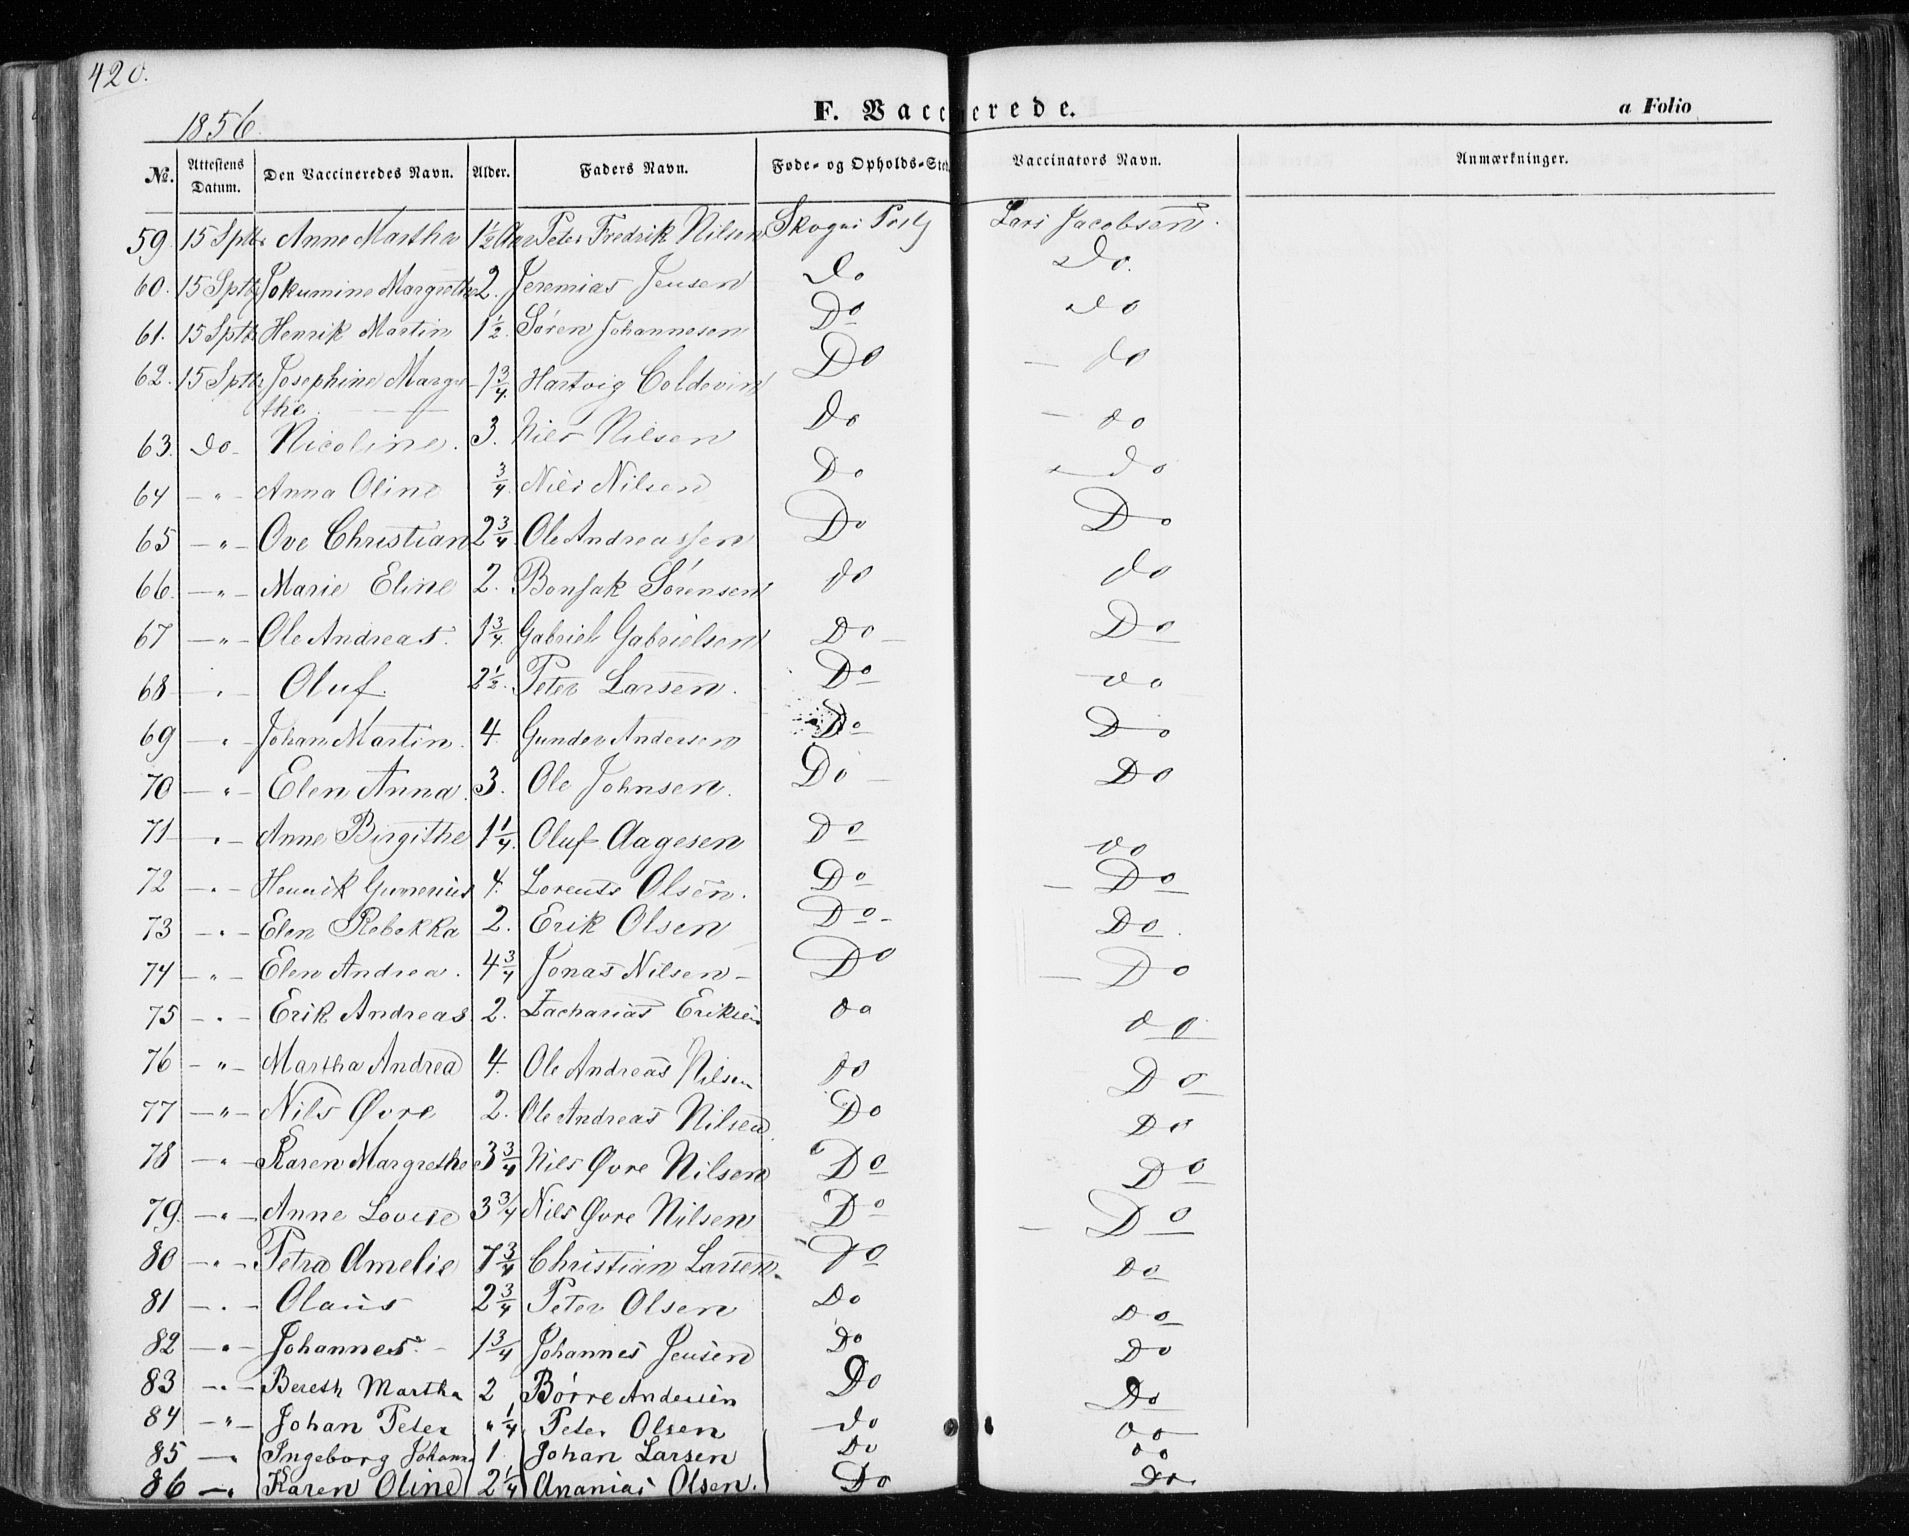 420.
1856.
F. Vaccinerede.
a Folio
No. Attestens Datum. Den Vaccineredes Navn. Alder. Faders Navn. Føde- og Opholds-Sted Vaccinators Navn. Anmærkninger.
59 15 Sptbr Anne Martha 1½ Aar Peter Fredrik Nilsen Skogns Lars Jacobsen.
60. 15 Sptb Jokumine Margrethe 2. Jeremias Jensen Do Do.
61. 15 Sptb Henrik Martin 1½. Søren Johannesen Do do
62. 15 Sptb Josephine Margre- 1¾. Hartvig Coldevin Do — do
the.
63. Do- Nicoline. 3. Niels Nilsen Do — do
64 — „ — Anna Oline ¾. Nils Nilsen Do — do
65 — „ — Ove Christian 2¾ Ole Andreassen Do Do
66. — „ — Marie Eline 2. Bonsak Sørensen do do
67 — „ — Ole Andreas. 1¾. Gabriel Gabrielsen Do — Do
68 — „ Oluf. 2½. Peter Larsen. Do do
69 — „ — Johan Martin. 4 Gunder Andersen Do Do
70 — „ — Elen Anna. 3. Ole Johnsen. Do — Do
71 — „ — Anne Birgithe 1¼. Oluf Aagesen Do do
72 — „ — Henrik 4. Lorents Olsen. Do — Do
73 — „ — Elen Rebekka 2. Erik Olsen Do - Do.
74 — „ — Elen Andrea. 4¾ Jonas Nilsen — Do — Do
75 — „ — Erik Andreas 2. Zacharias Eriksen do do
76 — „ — Martha Andrea 4. Ole Andreas Nilsen do Do
77 — „ — Nils Øvre 2. Ole Andreas Nilsen Do Do
78 — „ — Karen Margrethe 3¾ Nils Øvre Nilsen Do Do
79. — „ — Anne Lovise 3¾ Nils Øvre Nilsen Do — Do
80 — „ — Petra Amelie 7¾ Christian Larsen. do Do
81 — „ — Olaus 2¾ Peter Olsen Do Do
82 — „ — Johannes. 1¾ Johannes Jensen Do Do
83 — „ — Bereth Martha 2 Børre Andersen Do Do
84 — „ — Johan Peter „ ¼ Peter Olsen do do
85 — „ Ingeborg Johanne 1 Johan Larsen Do do
86 — „ Karen Oline 2¼ Ananias Olsen. Do Do